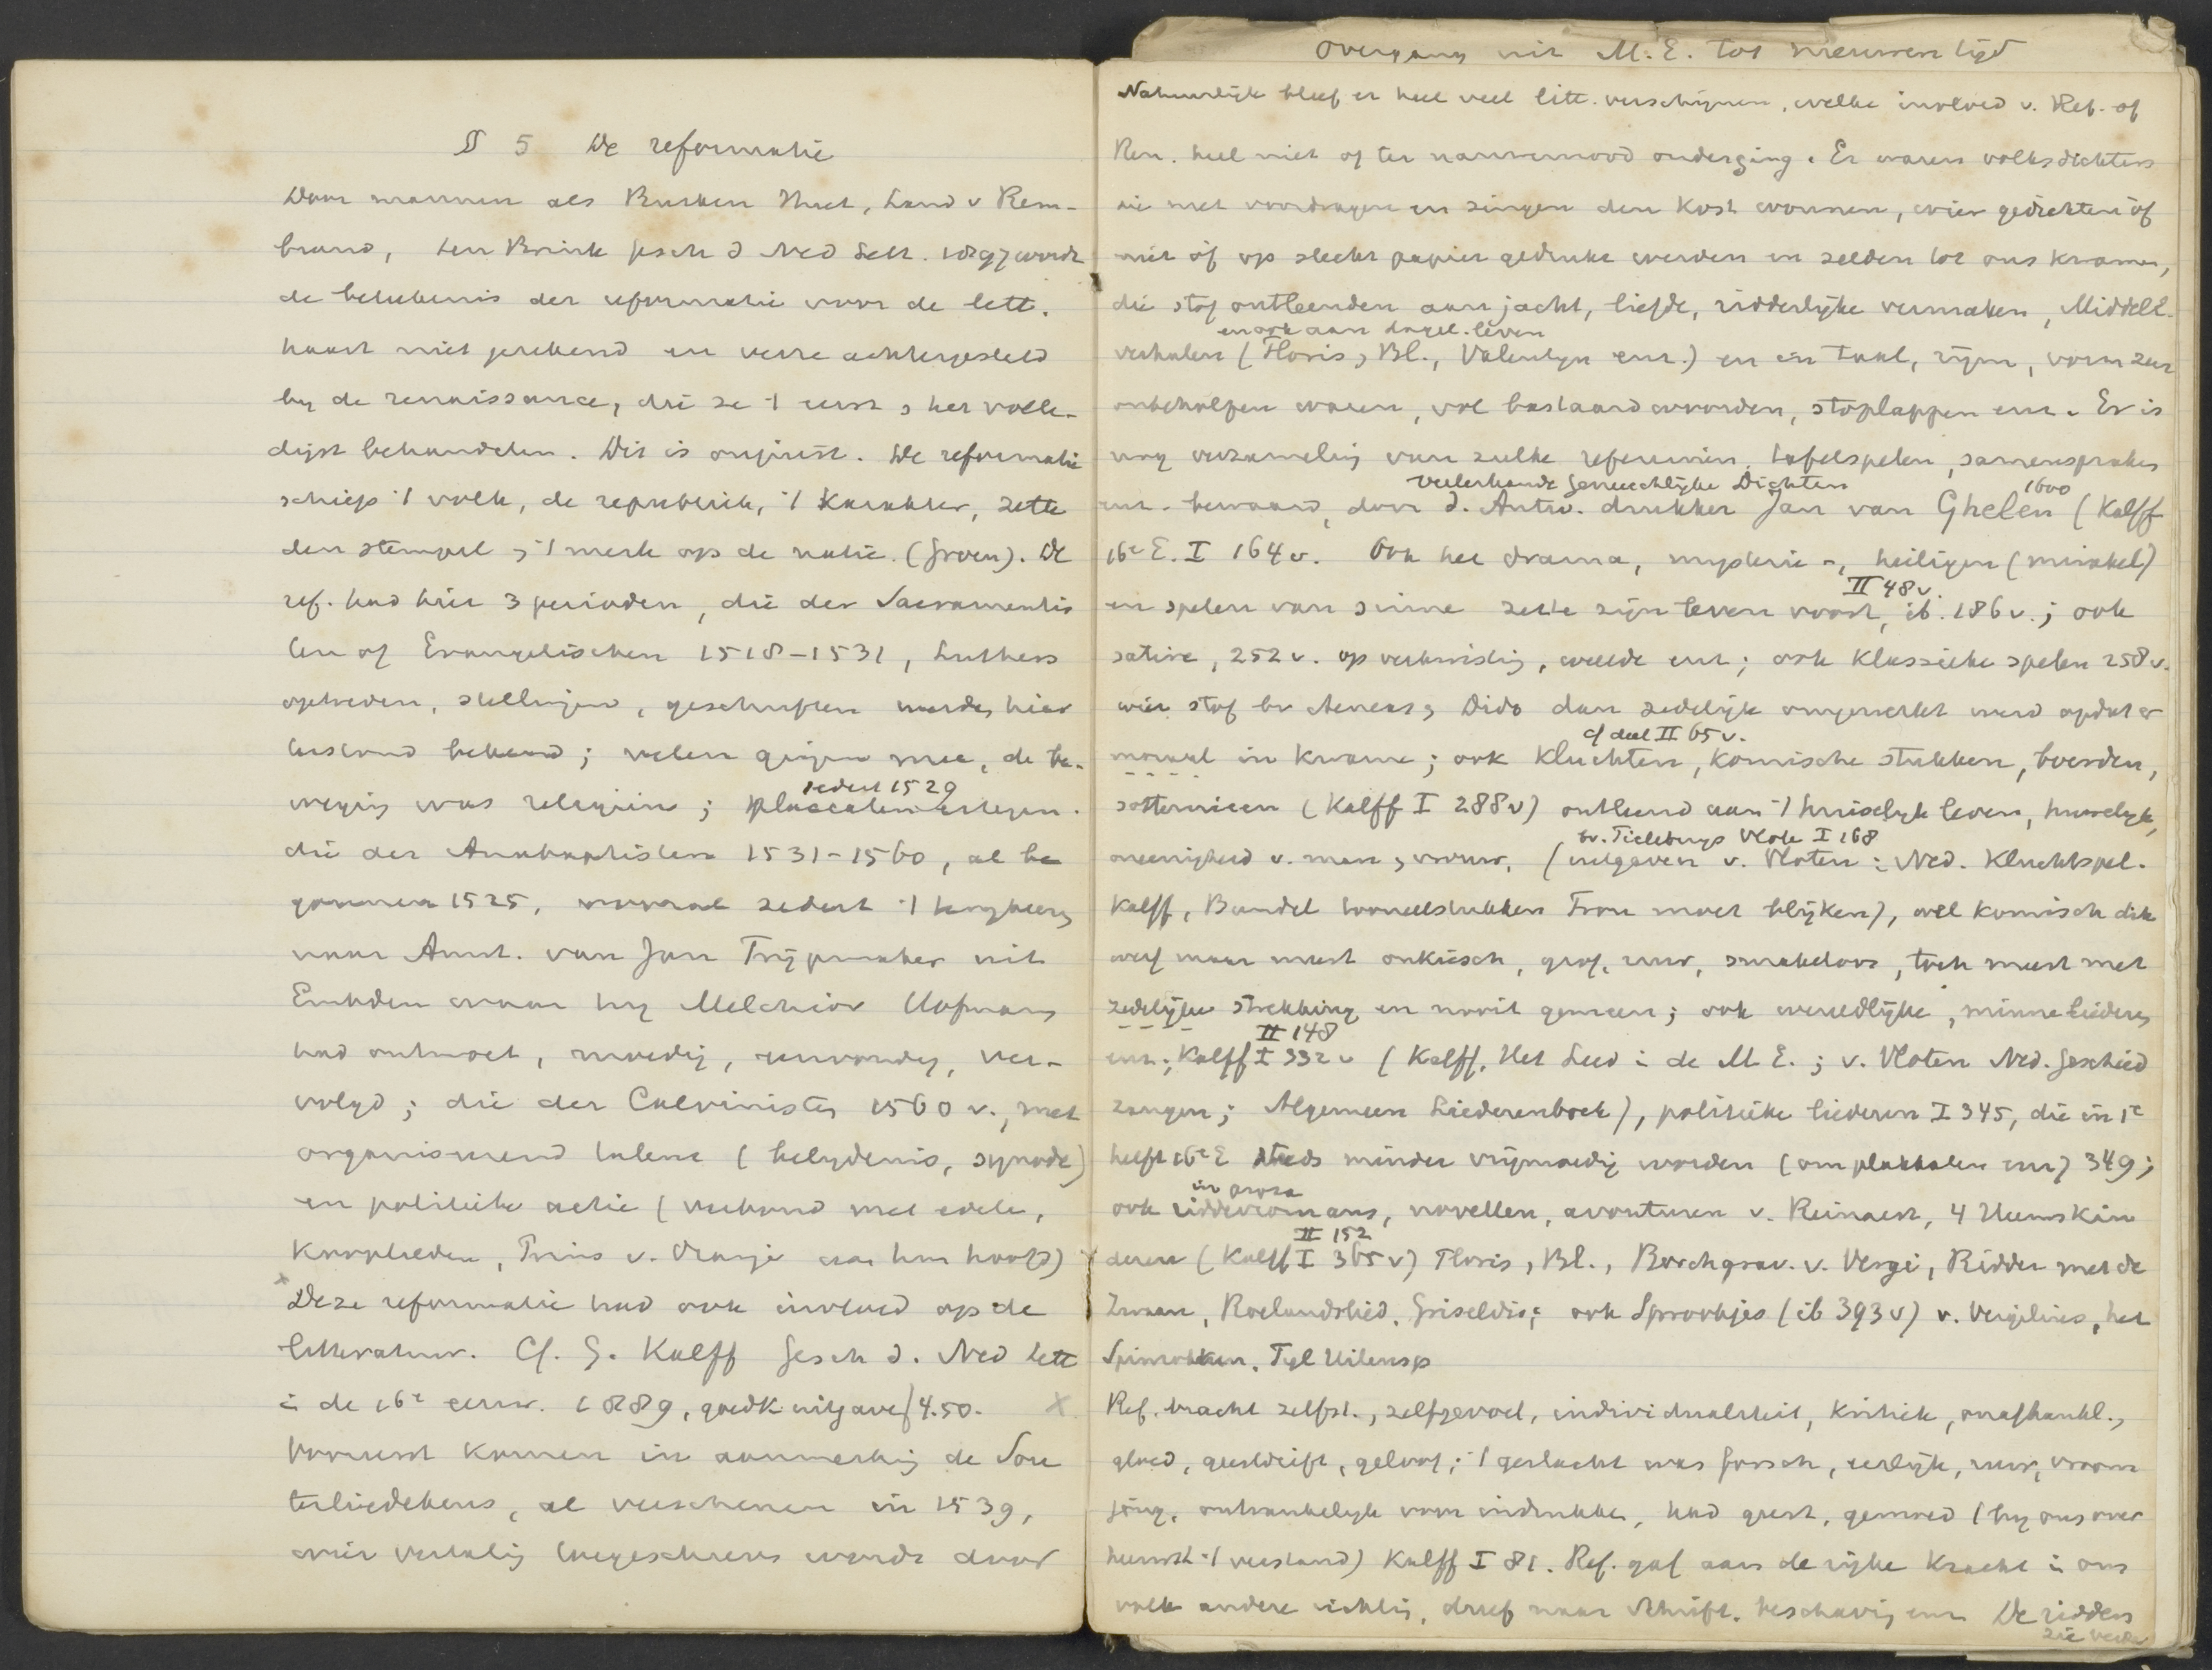 § 5 De reformatie
Door mannen als Busken Huet, Land v Rem-
brand, ten Brink gesch d Ned Lett. 1897 wordt
de beteekenis der reformatie voor de lett.
haast niet gerekend en verre achtergesteld
by de renaissance, die ze 't eerst & het volle-
digst behandelen. Dit is onjuist. De reformatie
schiep 't volk, de republiek, 't karakter, zette
den stempel & 't merk op de natie. (Groen). De
ref. had hier 3 perioden, die der Sacramentis
ten of Evangelischen 1518-1531, Luthers
optreden, stellingen, geschriften werden hier
bekend; velen gingen mee, de be-
weging was religieus; placcaten ertegen.
sedert 1529
die der Anabaptisten 1531-1560, al be
gonnen 1525, vooral sedert 't
naar Amst. van Jan Trijpmaker uit
Embden waar hy Melchior Hofmann
had ontmoet, moedig, eenvoudig, ver-
volgd; die der Calvinisten 1560 v., met
organiseerend talent (belydenis, synode)
en politieke actie (verband met edele,
kooplieden, Prins v. Oranje aan hun hoofd)
x Deze reformatie had ook invloed op de
litteratuur. Cf. G. Kalff Gesch d. Ned lett
i de 16e eeuw. 1889, goedk uitgave f 4.50. x
Vooreerst komen in aanmerking de Sou
terliedekens, al verschenen in 1539,
wier vertaling toegeschreven wordt door
Overgang uit M.E. tot nieuwen tijd
Natuurlijk bleef er heel veel litt. verschijnen, welke invloed v. Ref. of
Ren. heel niet of ter nauwernood onderging. Er waren volksdichters
die met voordragen en zingen den kost wonnen, wier gedichten óf
niet óf op slecht papier gedrukt werden en zelden tot ons kwamen,
die stof ontleenden aan jacht, liefde, ridderlyke vermaken, Middele.
en ook aan dagel. leven
verhalen (Floris & Bl., Valentyn enz.) en in taal, rijm, vorm zeer
onbeholpen waren, vol bastaardwoorden, stoplappen enz. Er is
nog verzameling van zulke refereinen, tafelspelen, samenspraken
Veelerhande Geneuchlijke Dichten 1600
enz. bewaard, door d. Antw. drukker Jan van Ghelen (Kalff
16e E. I 164 v. Ook het drama, mysterie -, heiligen (mirakel)
II 48 v.
en spelen van sinne zette zijn leven voort, ib. 186 v.; ook
satire, 252 v. op verkwisting, weelde enz; ook klassieke spelen 258 v.
wier stof bv Aeneas & Dido dan zedelijk omgewerkt werd opdat er
cf deel II 65 v.
moraal in kwame; ook kluchten, komische stukken, boerden,
sotternieen (Kalff I 288 v) ontleend aan 't huiselyk leven, huwelyk,
bv. Tielebuys Vlote I 168
oneenigheid v. man & vrouw. (uitgaven v. Vloten: Ned. Kluchtspel.
Kalff, Bundel tooneelstukken Trou moet blijken), wel komisch dik
werf maar meest onkiesch, grof, ruw, smakeloos, toch meest met
zedelijke strekking en nooit gemeen; ook wereldlijke, minneliederen
II 148
enz; Kalff I 332 v (Kalff, Het Lied i de M E.; v. Vloten Ned. Geschied
zangen; Algemeen Liederenboek), politieke liederen I 345, die in 1e
helft 16e E steeds minder vrijmoedig worden (om plakkaten enz) 349;
in proza
ook ridderromans, novellen, avonturen v. Reinaert, 4 Heemskin
II 152
deren (Kalff I 365 v) Floris & Bl., Borchgrav. v. Vergi, Ridder met de
Zwaan, Roelandslied, Griseldis; ook Sprookjes (ib 393 v) v. Vergilius, het
Spinrokken, Tyl Uilensp
Ref. bracht zelfst., zelfgevoel, individualiteit, kritiek, onafhankl.,
gloed, geestdrift, geloof; 't geslacht was forsch, eerlijk, ruw, vroom
jong, ontvankelyk voor indrukken, had geest, gemoed (by ons over
heerscht 't verstand) Kalff I 81. Ref. gaf aan de rijke kracht i ons
volk andere richting, dreef naar Schrift, beschaving enz De ridders
zie verder